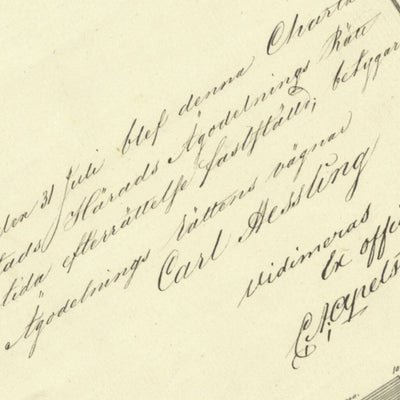 den 31 Juli blef denna Charta
tads Härads Ägodelnings Rätt
tida efterrättelse fastställd; betygar
Ägodelnings Rättens vägnar
Carl Aessling
vidimeras
Ex offi